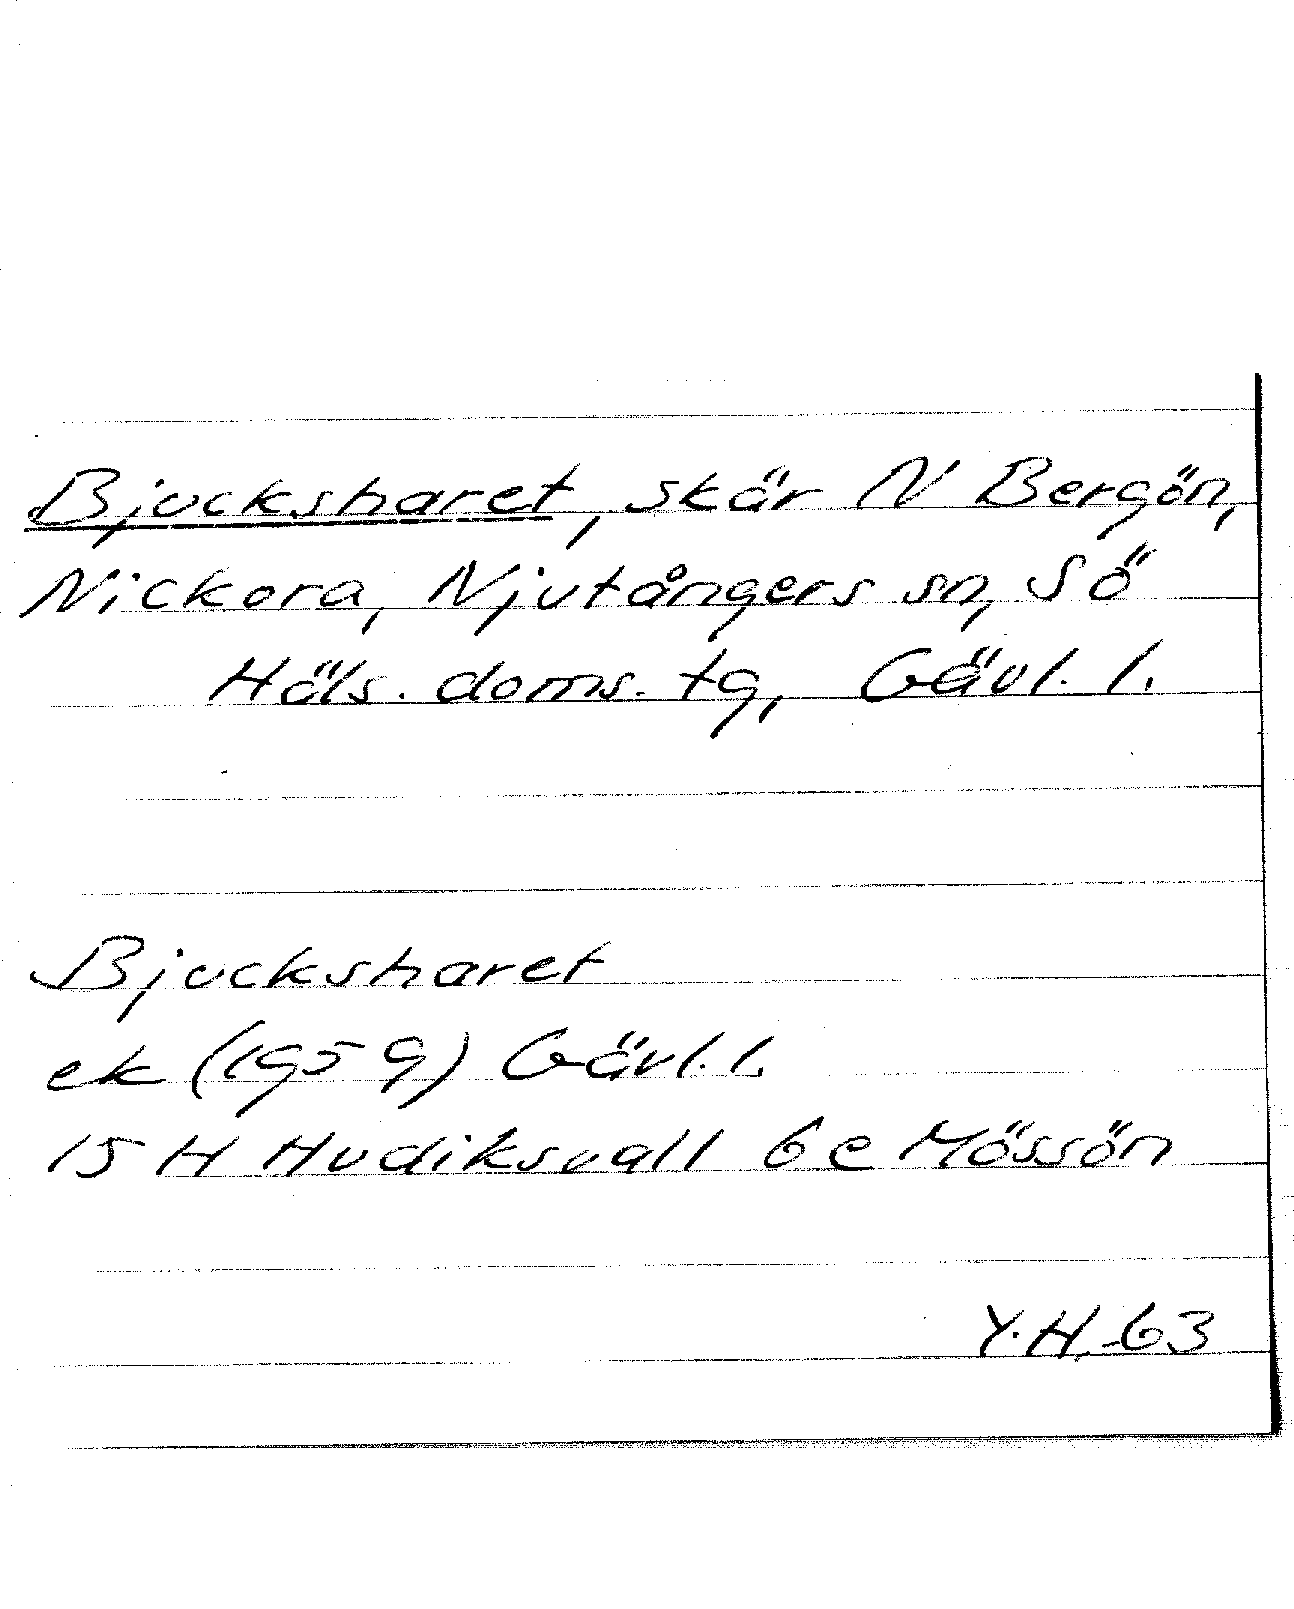 Bjucksharet, skär N Bergön,
Nickora, Njutångers sn, Sö
Häls. doms. tg, Gävl. l.
Bjucksharet
ek (1959) Gävl. l.
15 H Hudiksvall 6 e Mössön
Y. H. -63